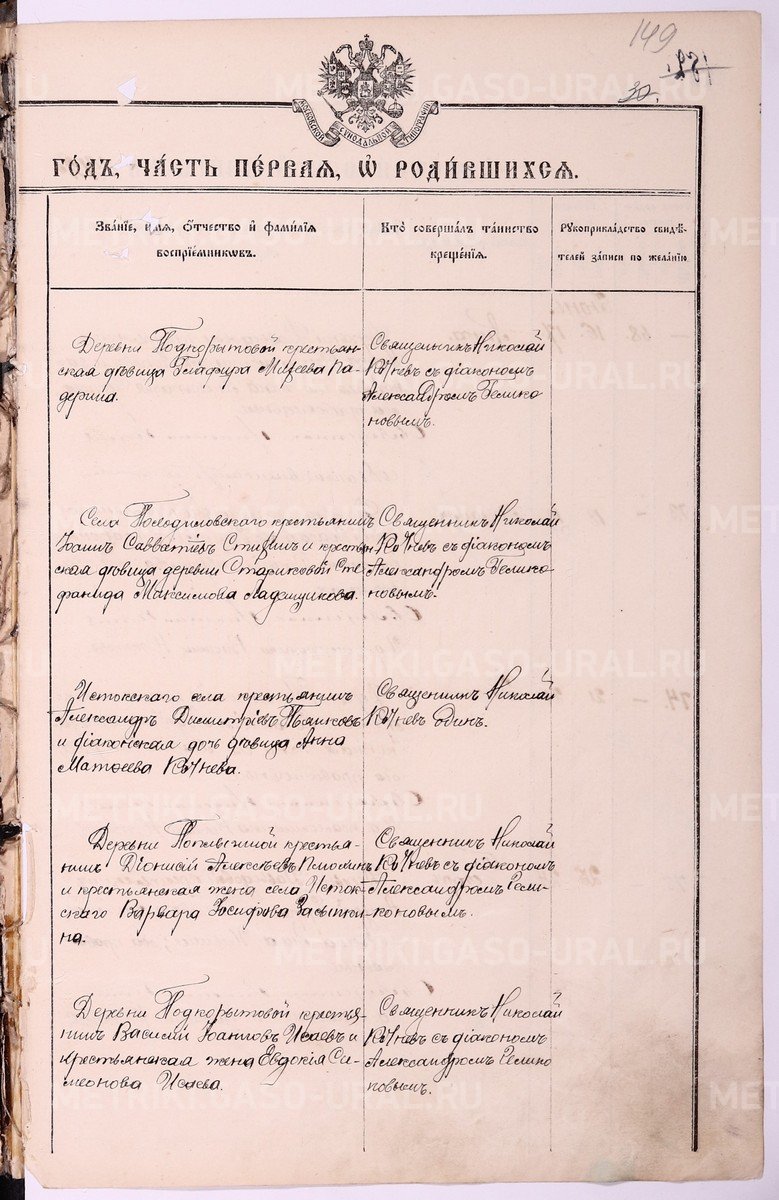 149
30.
МОСКОВСКОЙ СѴНОДАЛЬНОЙ ТИПОГРАФІИ
ГОДЪ, ЧАСТЬ ПЕРВАЯ, Ѡ РОДИВШИХСЯ.
Званіе, имя, отчество и фамилія
воспріемниковъ.
Кто совершалъ таинство
крещенія.
Рукоприкладство свидѣ-
телей записи по желанію
Деревни Подкорытовой крестьян-
ская дѣвица Глафира Па-
дерина.
Священникъ Николай
Кочневъ съ діакономъ
Александромъ Велико
новымъ.
Села крестьянинъ
Іоаннъ Савватіевъ и крестьян
ская дѣвица деревни Стариковой Сте
фанида Максимова Ладейщикова.
Священникъ Николай
Кочневъ съ діакономъ
Александромъ Велико
новымъ.
Истокскаго села крестьянинъ
Александръ Димитріевъ
и діаконская дочь дѣвица Анна
Матѳеева Кочнева.
Священникъ Николай
Кочневъ одинъ.
Деревни крестья-
нинъ Діонисій Алексѣевъ
и крестьянская жена села Исток-
скаго Варвара Іосифова Засыпки
на.
Священникъ Николай
Кочневъ съ діакономъ
Александромъ Вели-
коновымъ.
Деревни Подкорытовой крестья-
нинъ Василій Іоанновъ Исаевъ и
крестьянская жена Евдокія Си-
меонова Исаева.
Священникъ Николай
Кочневъ съ діакономъ
Александромъ Велико
новымъ.
METRIKI.GASO-URAL.RU